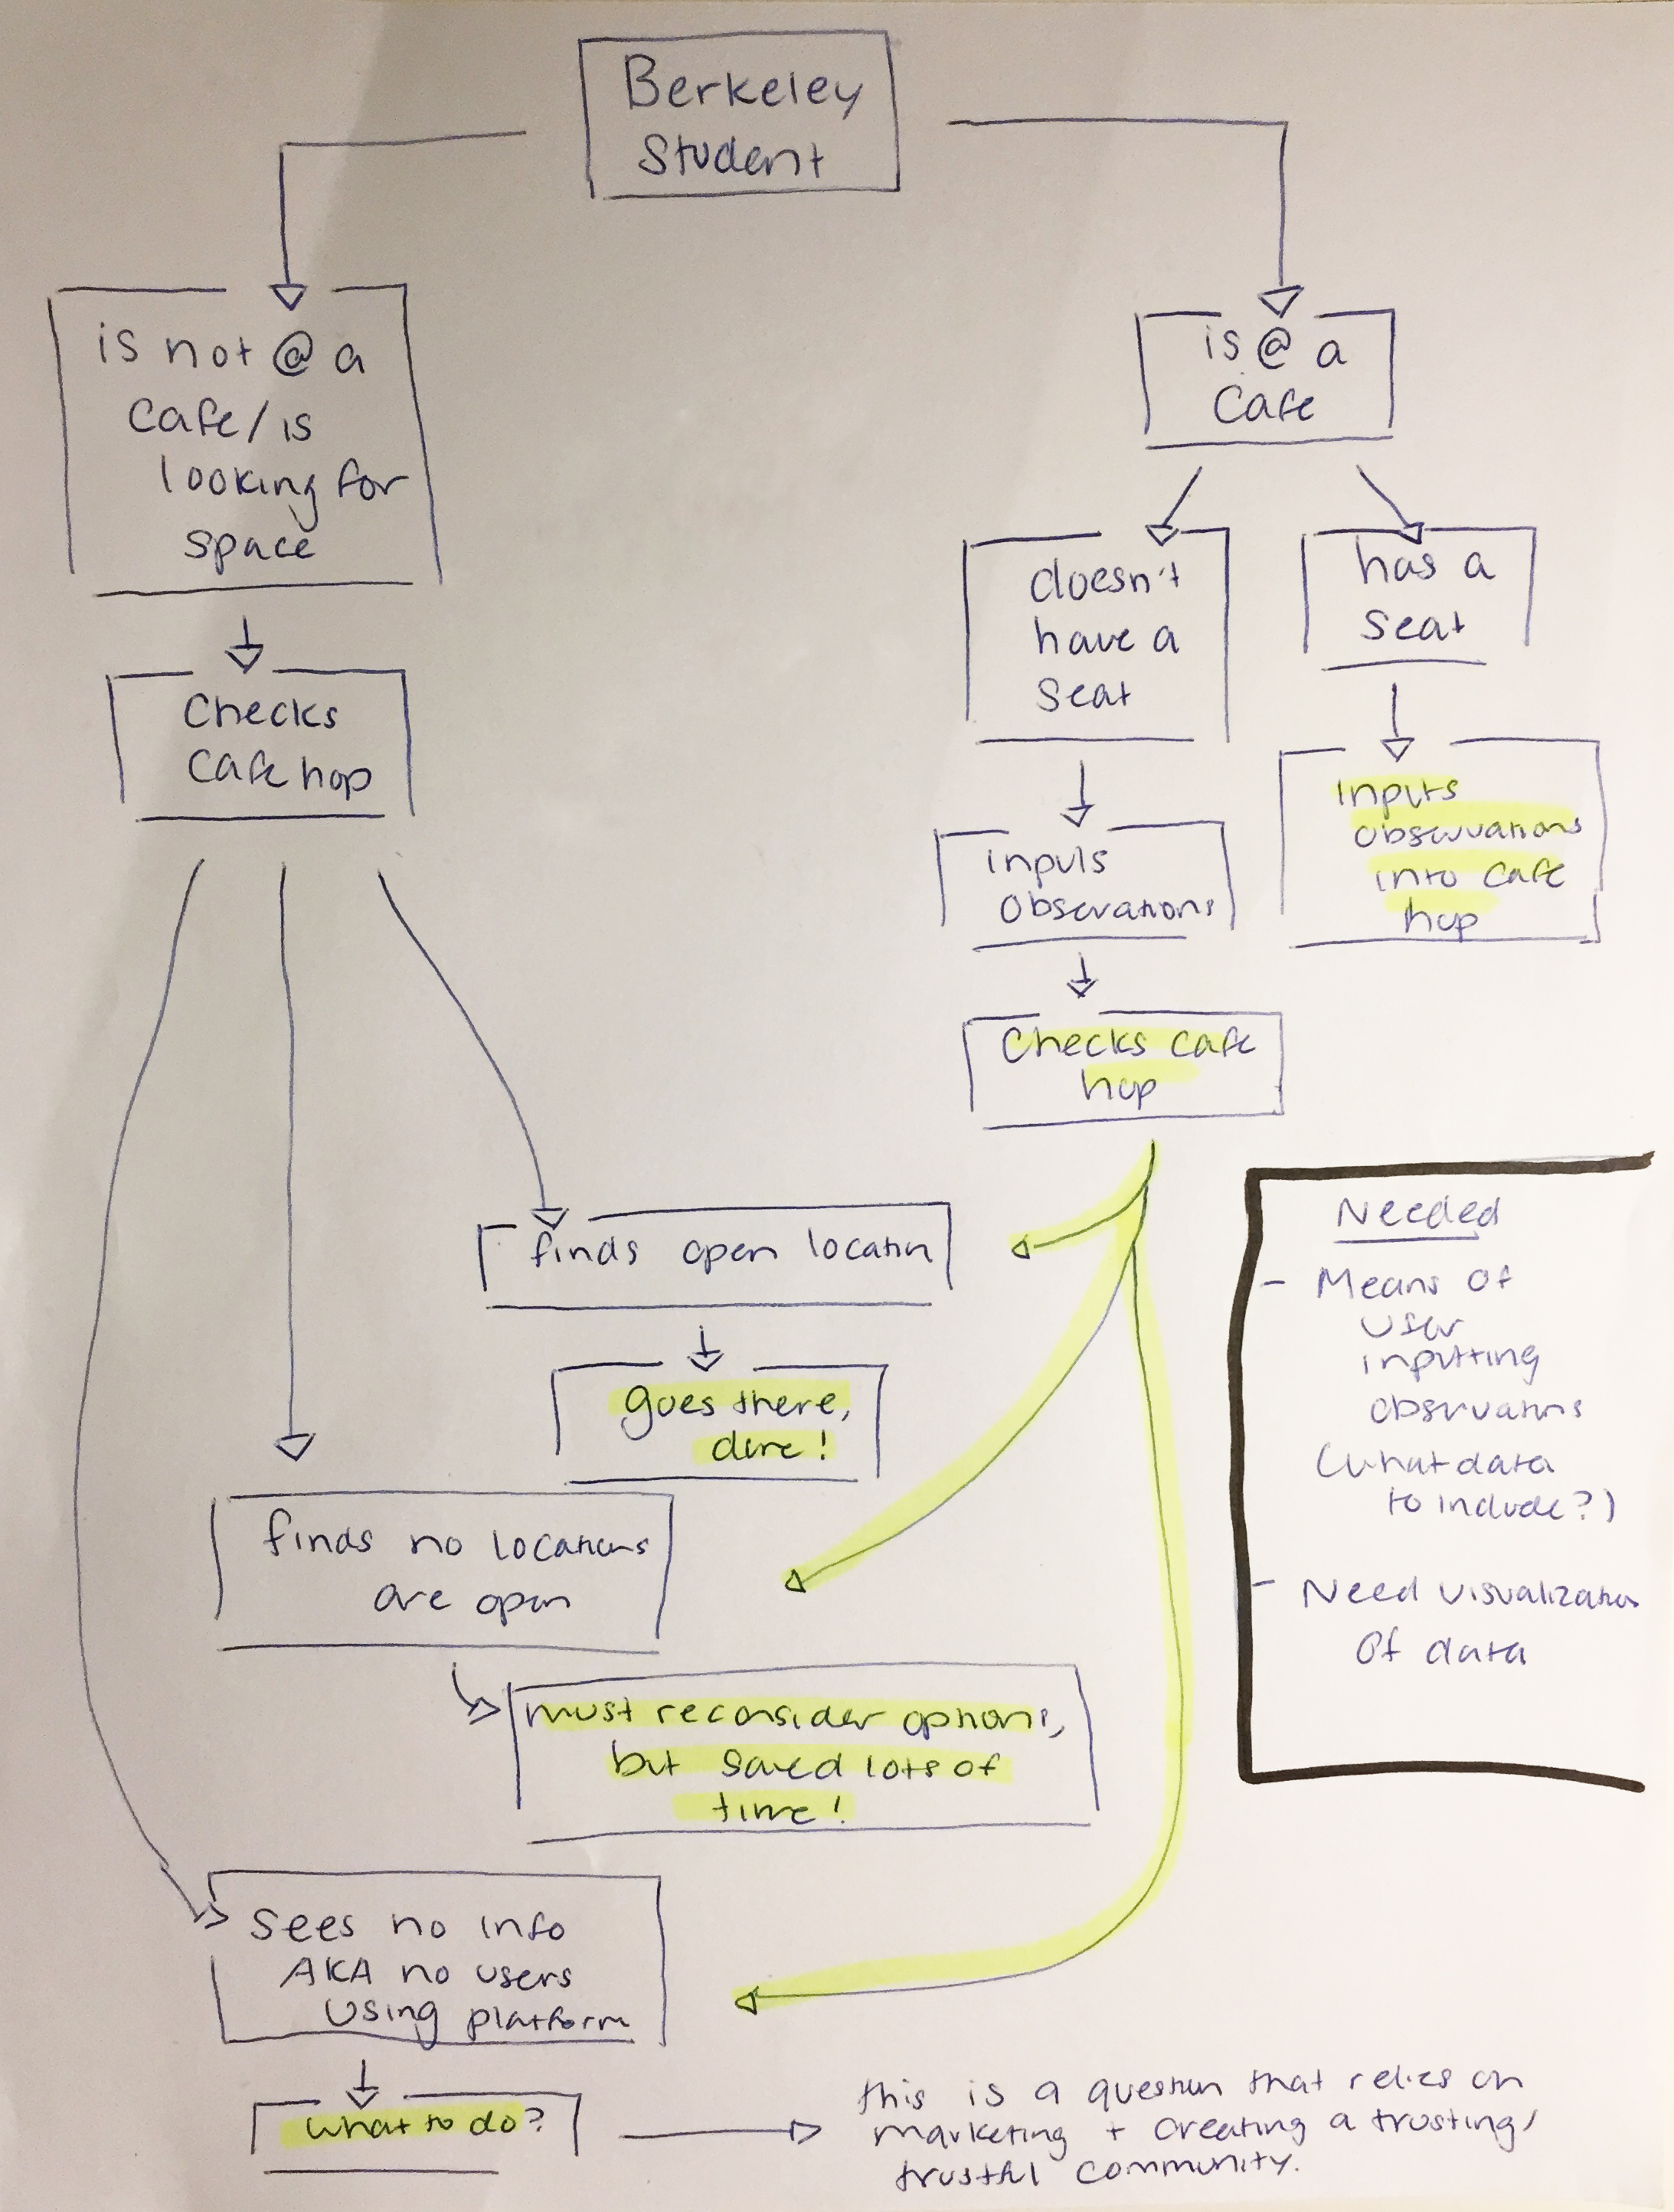 Berkeley
Student
is not @ a
Cafe/is
looking for
space
Checks
Cafe hop
is @ a
Cafe
doesn't
have a
Seat
has a
Seat
inputs
Observations
Inputs
Observations
into Cafe
hop
Checks Cafe
hop
finds open location
goes there,
done!
finds no locations
are open
must reconsider options,
but saved lots of
time!
Sees no info
AKA no users
Using platform
What to do?
this is a question that relies on
marketing + creating a trusting/
trustful community.
Needed
- Means of
User
inputting
Observations
(What data
to include?)
- Need visualization
Of data